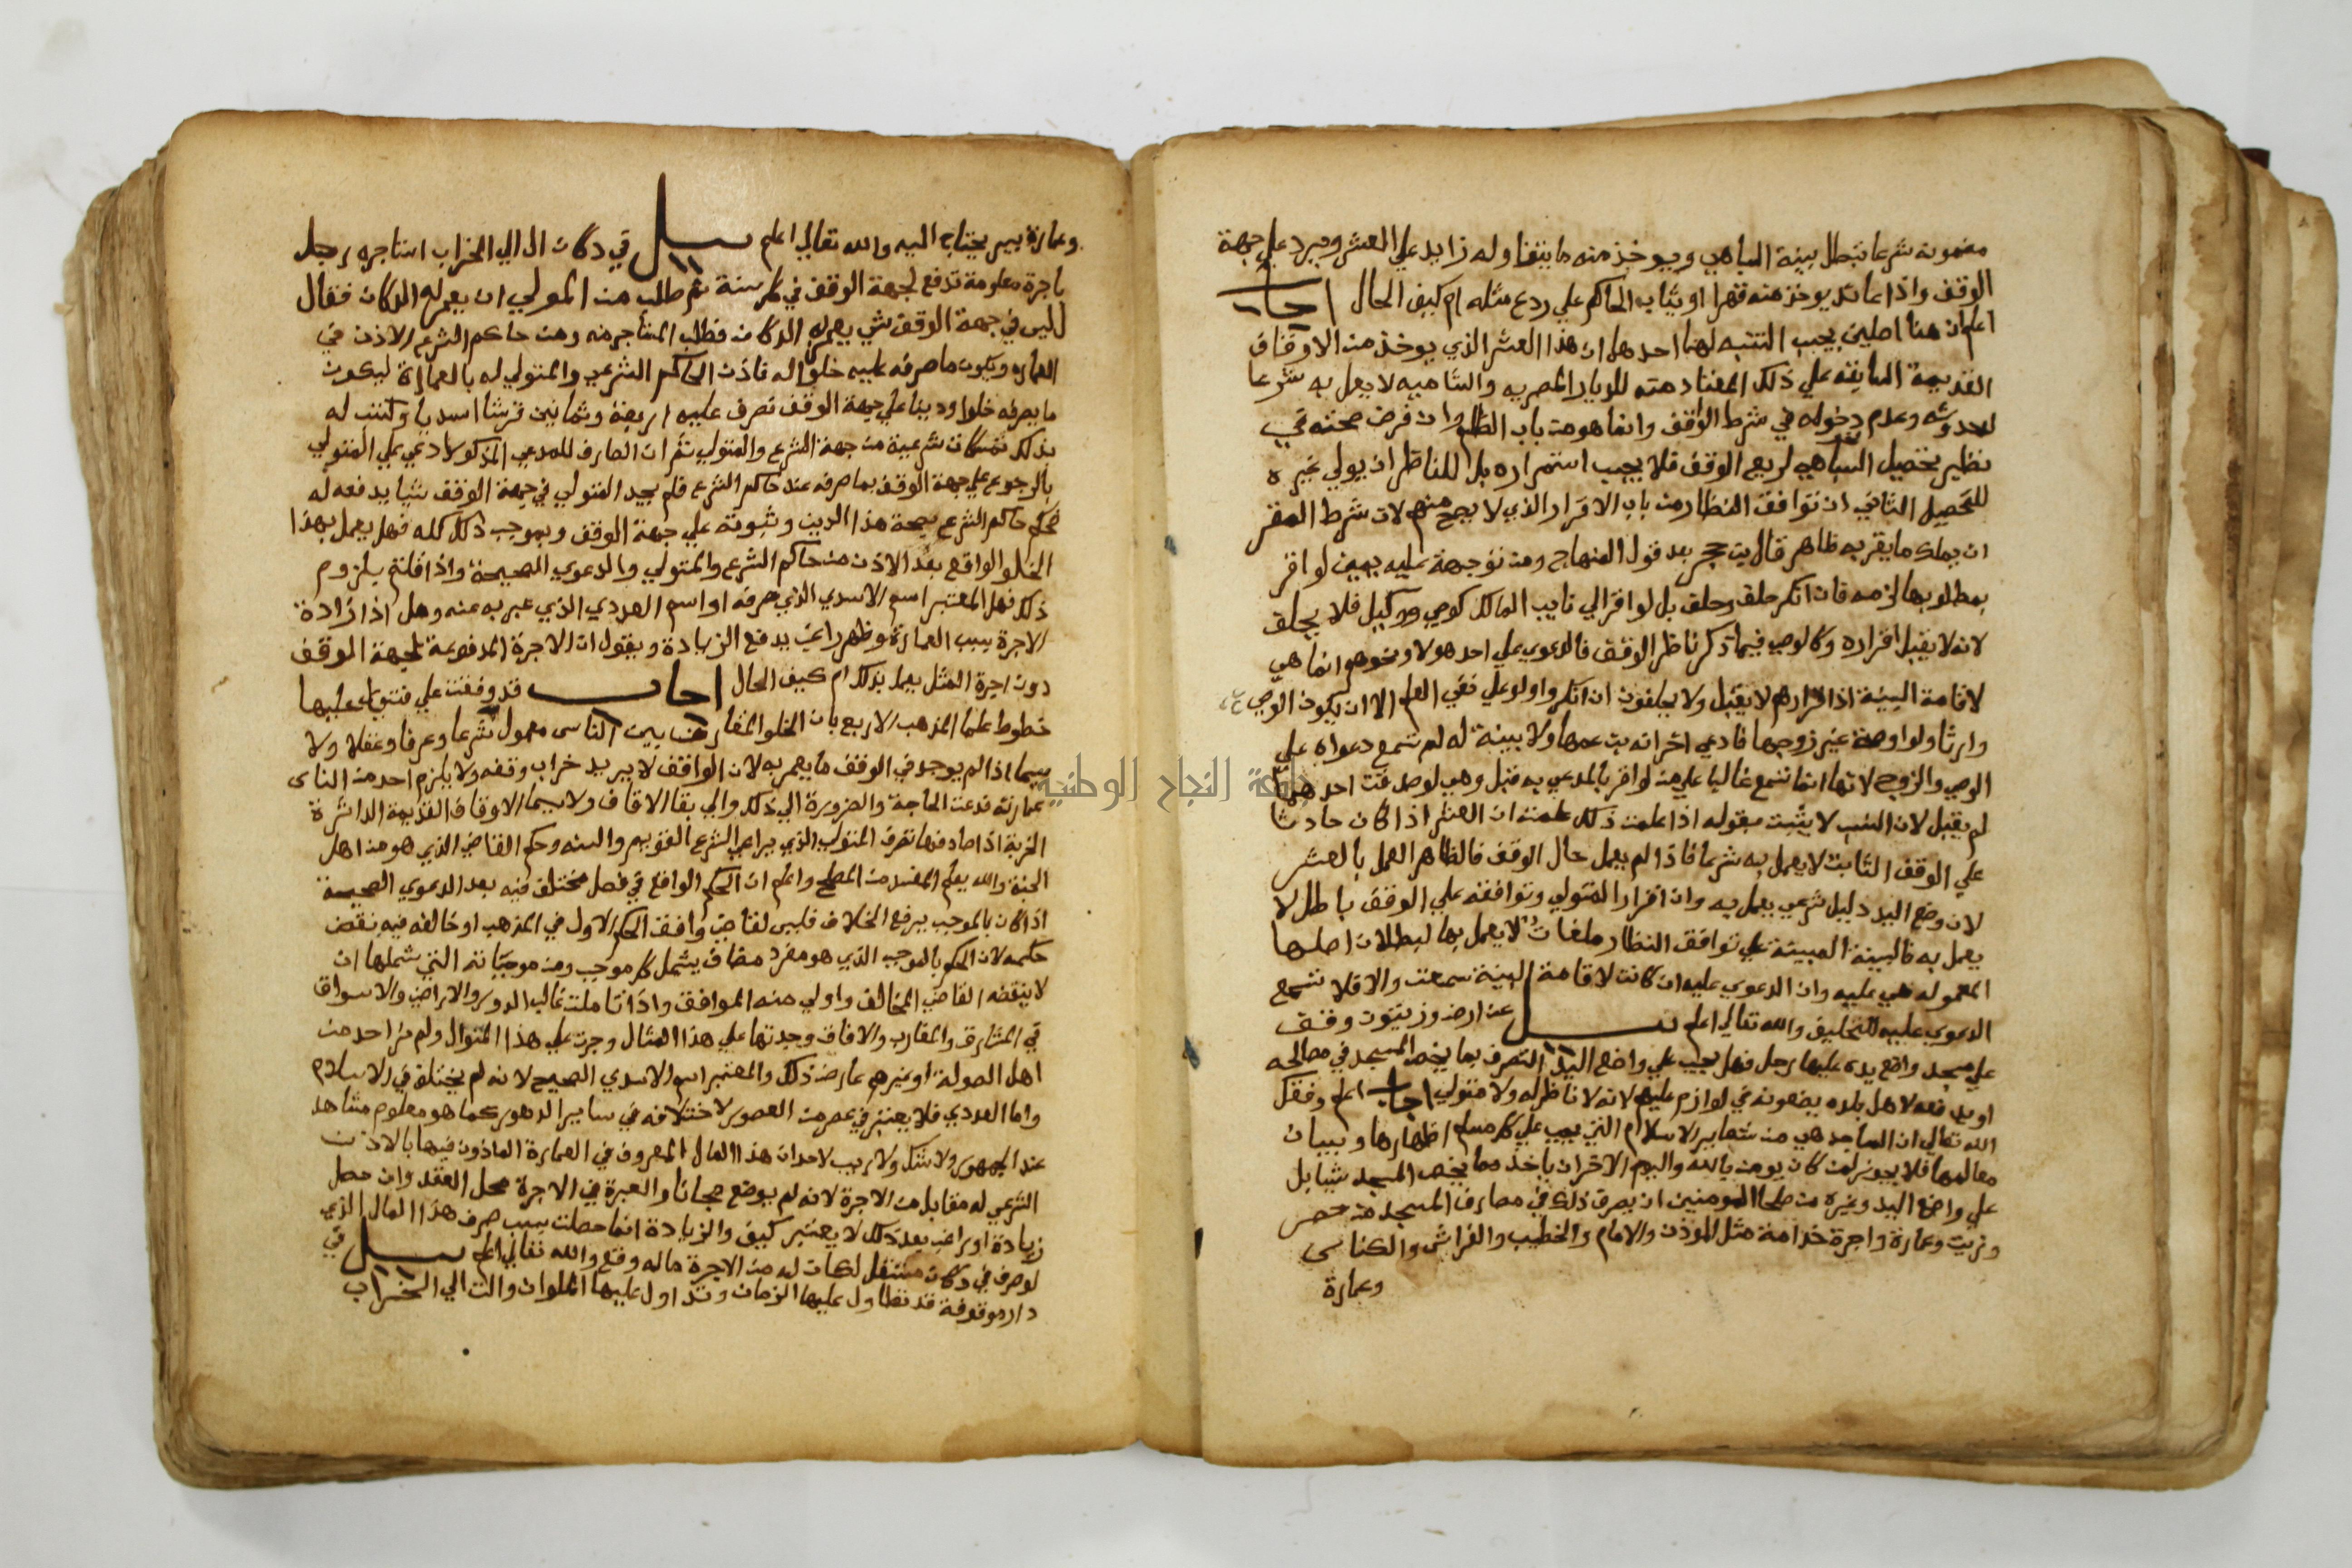 مضمونه شرعا تبطل بينة السباهي ويوخذ منه ما يتناوله زايد علي العشر ويرد علي جهة
الوقف واذا عاند يوخذ منه قهرا او يثاب الحاكم علي ردع مثله ام كيف الحال اجاب
اعلم ان هنا اصلين يجب التنبه لهما احدهما ان هذا العشر الذي يوخذ من الاوقاف
القديمة السابقة علي ذلك المعتاد منه للديار المصريه والشاميه لا يعمل به شرعا
لحدوثه وعدم دخوله في شرط الواقف وانما هو من باب الظلم وان فرض صحته في
نظير تحصيل السباهي لريع الوقف فلا يجب استمراره بل للناظر ان يولي غيره
للتحصيل الثاني ان توافق النظار من باب الاقرار الذي لا يصح منهم لان شرط المقر
ان يملك ما يقر به ظاهر قال بن حجر بعد قول المنهاج ومن توجهة عليه يمين لو اقر
بمطلوبها لزمه فان انكر حلف وحلف بل لو اقر الي نايب المالك كوصي ووكيل فلا يحلف
لانه لا يقبل اقراره وكالوصي فيما ذكر ناظر الوقف فالدعوي علي احد هولا ونحوهم انما هي
لاقامة البينة اذا اقرارهم لا يقبل ولا يحلفون ان انكروا ولو علي نفي العلم الا ان يكون الوصي
وارثا ولو اوصت غير زوجها فادعي اخر انه بن عمها ولا بينة له لم تسمع دعواه علي
الوصي والزوج لانها انما تسمع غالبا علي من لو اقر بالمدعي به قبل وهي لو صدقت احدهما
لم يقبل لان النسب لا يثبت بقوله اذا علمت ذلك علمت ان العشر اذا كان حادثا
علي الوقف الثابت لا يعمل به شرعا فاذا لم يعمل حال الوقف فالظاهر العمل بالعشر
لان وضع اليد دليل شرعي يعمل به وان اقرار المتولي وتوافقه علي الوقف باطل لا
يعمل به فالبينة المبينة علي توافق النظار ملغات لا يعمل بها لبطلان اصلها
المعموله هي عليه وان الدعوي عليه ان كانت لاقامة البينة سمعت والا فلا تسمع
الدعوي عليه للتحليف والله تعالي اعلم سيل عن ارض وزيتون وقف
علي مسجد واضع يده عليها رجل فهل يجب علي واضع اليد التصرف بما يخص المسجد في مصالحه
او يدفعه لاهل بلده يضعونه في لوازم عليهم لانه لا ناظر له ولا متولي اجاب اعلم وفقك
الله تعالي ان المساجد هي من شعاير الاسلام التي يجب علي كل مسلم اظهارها وبيان
معالمها فلا يجوز لمن كان يومن بالله واليوم الاخر ان ياخذ مما يخص المسجد شيا بل
علي واضع اليد وغيره من صلحا المومنين ان يصرف ذلك في مصارف المسجد من حصر
وزيت وعمارة واجرة خدامة مثل الموذن والامام والخطيب والفراش والكناس
وعمارة
وعمارة بير يحتاج اليه والله تعالي اعلم سيل في دكان ال الي الخراب استاجره رجل
باجرة معلومة تدفع لجهة الوقف في كل سنة ثم طلب من المولي ان يعمر له الدكان فقال
ليس في جهة الوقف شي يعمر به الدكان فطلب المستاجر منه ومن حاكم الشرع الاذن في
العماره ويكون ما صرفه عليه خلوا له فاذن الحاكم الشرعي والمتولي له بالعمارة ليكون
ما يصرفه خلوا ودينا علي جهة الوقف فصرف عليه اربعة وثمانين قرشا اسديا وكتب له
بذلك تمسكان شرعية من جهة الشرع والمتولي ثم ان الصارف للمدعي المذكور ادعي علي المتولي
بالرجوع علي جهة الوقف بما صرفه عند حاكم الشرع فلم يجد المتولي في جهة الوقف شيا يدفعه له
فحكم حاكم الشرع بصحة هذا الدين وثبوته علي جهة الوقف وبموجب ذلك كله فهل يعمل بهذا
الخلو الواقع بعد الاذن من حاكم الشرع والمتولي والدعوي الصحيحة واذا قلتم بلزوم
ذلك فهل المعتبر اسم الاسدي الذي صرفه او اسم العددي الذي عبر به عنه وهل اذا زادة
الاجرة بسبب العمارة وظهر راغب يدفع الزيادة ويقول ان الاجرة المدفوعة لجهة الوقف
دون اجرة المثل يعمل بذلك ام كيف الحال اجاب قد وقفت علي فتوي عليها
خطوط علما المذهب الاربع بان الخلو المتعارف بين الناس معمول شرعا وعرفا وعقلا ولا
سيما اذا لم يوجد في الوقف ما يعمر به لان الواقف لا يريد خراب وقفه ولا يلزم احد من الناس
عمارته فدعت الحاجة والضرورة الي ذلك والي بقا الاقاف ولا سيما الاوقاف القديمة الداثرة
الخربة اذا صادفها تصرف المتولي الذي يراعي الشرع القويم والسنه وحكم القاضي الذي هو من اهل
الجنة والله يعلم المفسد من المصلح واعلم ان الحكم الواقع في فصل مختلف فيه بعد الدعوي الصحيحة
اذا كان بالموجب يرفع الخلاف فليس لقاض وافق الحكم الاول في المذهب او خالفه فيه نقض
حكمه لان الحكم بالموجب الذي هو مفرد مضاف يشمل كل موجب ومن موجباته التي شملها ان
لا ينقضه القاضي المخالف واولي منه الموافق واذا تاملت غالب الدور والاراضي والاسواق
في المشارق والمغارب والافاق وجدتها علي هذا المثال وجرت علي هذا المنوال ولم نر احد من
اهل الصولة او غيرهم عارض ذلك والمعتبر اسم الاسدي الصحيح لانه لم يختلف في الاسلام
واما العددي فلا يعتبر في عصر من العصور لاختلافه في ساير الدهور كما هو معلوم مشاهد
عند الجمهور ولا شك ولا ريب لاحد ان هذا المال المصروف في العمارة الماذون فيها بالاذن
الشرعي له مقابل من الاجرة لانه لم يوضع مجانا والعبرة في الاجرة محل العقد وان حصل
زيادة او راغب بعد ذلك لا يعتبر كيف والزيادة انما حصلت بسبب صرف هذا المال الذي
لو صرف في دكان مستقل لكان له من الاجرة ماله وقع والله تعالي اعلم سيل في
دار موقوفة قد تطاول عليها الزمان وتداول عليها الملوان والت الي الخراب
جامعة النجاح الوطنية